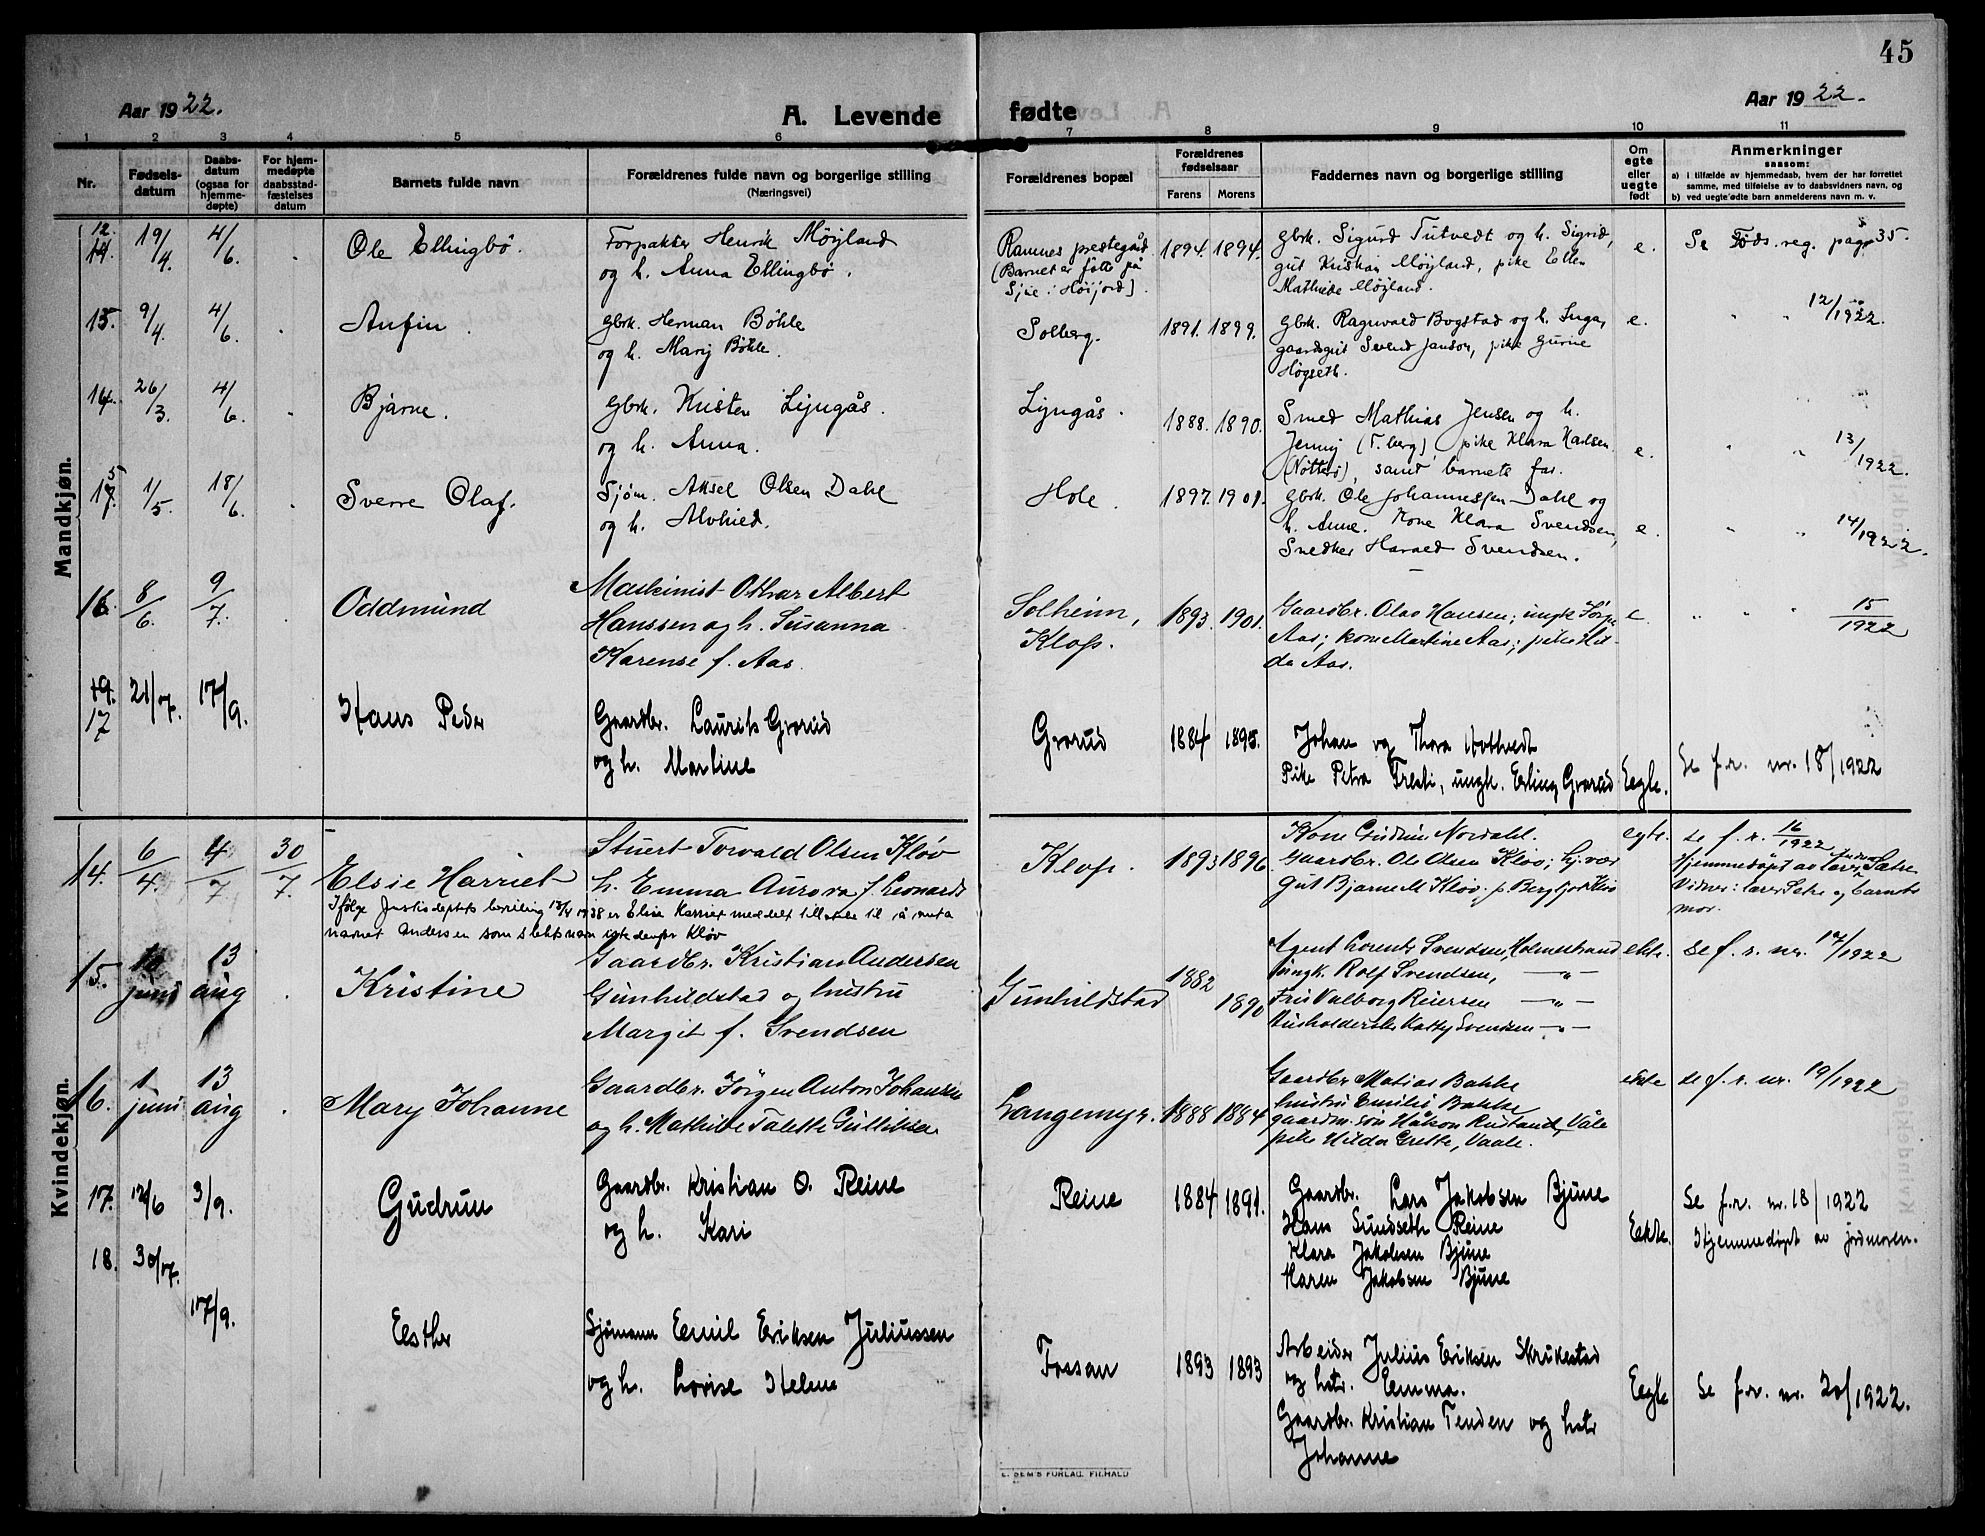 45
Aar 1922.
A. Levende
fødte
Aar 1922.
1 2 3 4 5 6 7 8 9 10 11
Nr.
Fødsels-
datum
Daabs-
datum
(ogsaa for
hjemme-
døpte)
For hjem-
medøpte
daabsstad-
fæstelses
datum
Barnets fulde navn
Forældrenes fulde navn og borgerlige stilling
(Næringsvei)
Forældrenes bopæl
Forældrenes
fødselsaar
Farens Morens
Faddernes navn og borgerlige stilling
Om
egte
eller
uegte
født
Anmerkninger
saasom:
a) i tilfælde av hjemmedaab, hvem der har forrettet
samme, med tilføielse av to daabsvidners navn, og
b) ved uegte fødte barn anmelderens navn m. v.
Mandkjøn.
12. 19/4. 4/6. Ole Ellingbö.
Forpakter Henrik Möyland
og h. Anna Ellingbö.
Ramnes prestegård
(Barnet er født på
Sjue i Höijord).
1894. 1894.
Gbrk. Sigurd Tutvedt og h. Sigrid,
gut Kristian Möyland, pike Ellen
Mathilde Möyland.
e.
Se Föds. reg. pag. 35.
15. 9/4. 4/6. Anfin.
Gbrk. Herman Böhle
og h. Mary Böhle.
Solberg.
1891. 1899.
Gbrk. Ragnvald Bogstad og h. Inga,
gaardsgut Svend Janson, pike Gurine
Högseth.
e.
" " 12/1922.
14. 26/3. 4/6. Bjarne.
Gbrk. Kristen Lyngås.
og h. Anna.
Lyngås.
1888. 1890.
Smed Mathias Jensen og h.
Jenny (T.berg) pike Klara Karlsen
(Nötterö), samt barnets far.
e.
" " 13/1922.
17. 5 1/5. 18/6. Sverre Olaf.
Sjöm. Aksel Olsen Dahl
og h. Alvhild.
Hole.
1897. 1901.
Gbrk. Ole Johannessen Dahl og
h. Anne. Kone Klara Svendsen,
Snedker Harald Svendsen.
e.
" " 14/1922.
16. 8/6. 9/7. Oddmund
Maskinist Othar Albert
Hanssen og h. Susanna
Karense f. Aas.
Solheim,
Klop.
1893. 1901.
Gaardbr. Olav Hansen; ungk.
Aas; kone Martine Aas; pike Hil-
da Aas.
e.
" " 15/1922
19. 17 21/7. 17/9. Hans Peder
Gaardbr. Laurits Grorud
og h. Martine
Grorud
1884 1895.
Johan og Thora Hotvedt
Pike Petra Tresti, ungk. Erling Grorud
Eegte.
Se f.r. nr. 18/1922
Kvindekjøn.
14. 6/4. 4/7 30/7. Elsie Harriet
Stuert Torvald Olsen Klöv
h. Emma Aurora f. Leonardt
Ifölge Justisdeptets bevilling 13/4 1938 er Elsie Harriet meddelt tillatelse til å anta
navnet Andersen som slektsnavn istedenfor Klöv
Klop.
1893 1896
Kone Gudrun Nordahl.
Gaardbr. Ole Olsen Klöv;
Gut Bjarne M Klöv. p. Bergljot Klöv
egte.
se f. r. 16/1922
Hjemmedöpt av lærerinden Sætre
Vidner: lærer Sætre og barnets
mor.
15. juni 13 aug Kristine
Gaardbr. Kristian Andersen
Gunhildstad og hustru
Margit f. Svendsen
Gunhildstad
1882
1890
Agent Lorents Svendsen, Holmestrand
ungk. Rolf Svendsen, —"—
Frk Valborg Reiersen —"—
Husholderske Kathy Svendsen —"—
ekte.
se f. r. nr. 17/1922
16. 1 juni 13 aug Mary Johanne
Gaardbr. Jörgen Anton Johansen
og h. Mathilde Talette Gulliksen
Langemyr.
1888 1884
Gaardbr Matias Bakke
hustru Emilie Bakke
gaardm. sön Håkon Rustand, Våle
pike Hilda Grette, Vaale.
ekte
se f. r. nr. 19/1922
17. 12/6 3/9. Gudrun
Gaardbr. Kristian O. Reine
og h. Kari
Reine
1884 1891.
Gaardbr. Lars Jakobsen Bjune
Hans Sundseth Reine
Klara Jakobsen Bjune
Karen Jakobsen Bjune
Eekte.
Se f.r. nr. 18/1922
Hjemmedöpt av jordmoren.
18. 30/7. 17/9. Eesther
Sjömann Eemil Eriksen Juliussen
og h. Lovise Helene
Fossan
1893 1893
Arbeider Julius Eriksen Skrukestad
og hstr. Eemma.
Gaardbr. Kristian Tenden og hstr
Johanne
Eegte
Se f.r. nr. 20/1922.
E. SEM'S FORLAG. FR.HALD